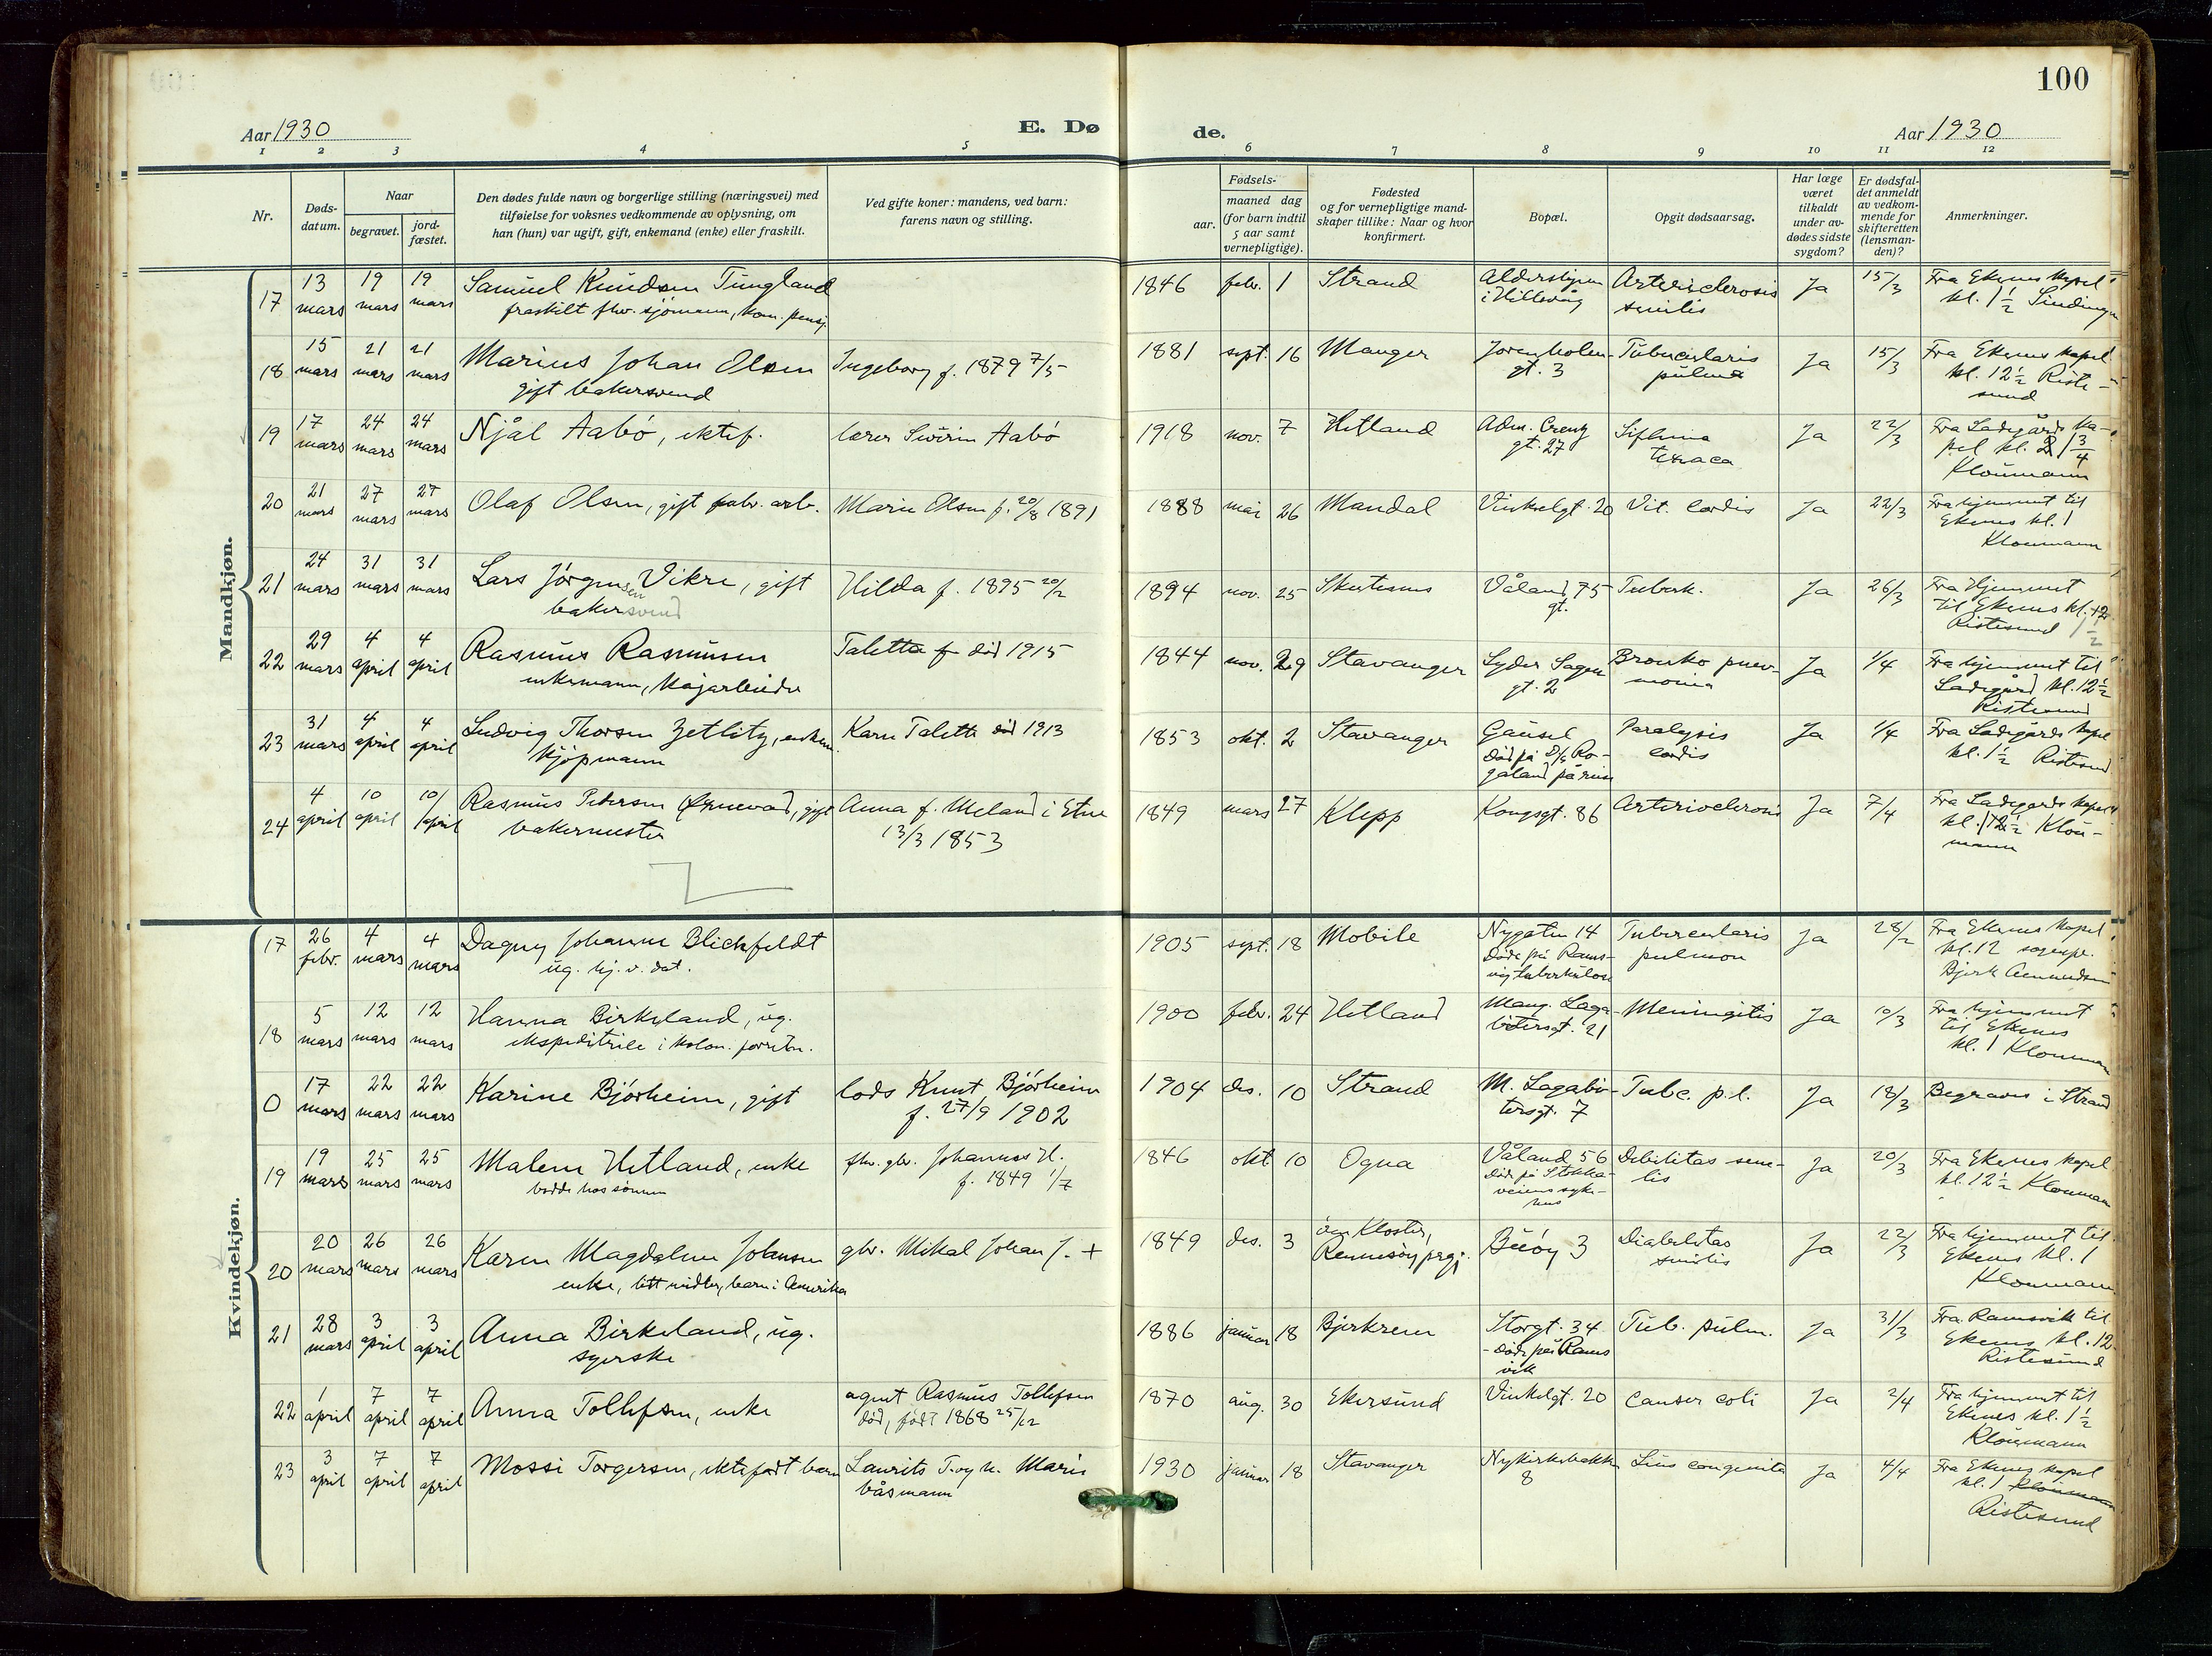 100
Aar 1930
E. Dø
de.
Aar 1930
1 2 3 4 5 6 7 8 9 10 11 12
Nr.
Døds-
datum.
Naar
begravet.
jord-
fæstet.
Den dødes fulde navn og borgerlige stilling (næringsvei) med
tilføielse for voksnes vedkommende av oplysning, om
han (hun) var ugift, gift, enkemand (enke) eller fraskilt.
Ved gifte koner: mandens, ved barn:
farens navn og stilling.
Fødsels-
aar.
maaned dag
(for barn indtil
5 aar samt
vernepligtige).
Fødested
og for vernepligtige mand-
skaper tillike: Naar og hvor
konfirmert.
Bopæl.
Opgit dødsaarsag.
Har læge
været
tilkaldt
under av-
dødes sidste
sygdom?
Er dødsfal-
det anmeldt
av vedkom-
mende for
skifteretten
(lensman-
den)?
Anmerkninger.
Mandkjøn.
17 13 mars 19 mars 19 mars Samuel Knudsen Tungland 1846 febr. 1 Strand Ja 15/3 Fra Ekenes kapel
fraskilt fhv. sjömann, kom. pensj. i Hillevåg senilis kl. 1 1/2
18 15 mars 21 mars 21 mars Marius Johan Olsen Ingeborg f. 1879 7/5 1881 sept. 16 Manger Jorenholmen- Ja 15/3 Fra Ekenes kapel
gift bakersvend gt. 3 kl. 12 1/2 Riste-
sund
19 17 mars 24 mars 24 mars Njål Aabö, ektef. lærer Sivérin Aabö 1918 nov. 7 Hetland Ja 22/3 Fra Ladegårds ka-
gt. 27 pel kl. 1 3/4
Kloumann
20 21 mars 27 mars 27 mars Olaf Olsen, gift fabr. arb. Marie Olsen f. 20/8 1891 1888 mai 26 Mandal Vinkelgt. 20 Vit. cordis Ja 22/3 Fra hjemmet til
Ekenes kl. 1
Kloumann
21 24 mars 31 mars 31 mars Lars Jörgensen Vikre, gift Hilda f. 1895 20/2 1894 nov. 25 Våland 75 Tuberk. Ja 26/3 Fra Hjemmet
bakersvend gt. til Ekenes kl.
Ristesund
22 29 mars 4 april 4 april Rasmus Rasmussen Taletta f død 1915 1844 nov. 29 Stavanger Lyder Sagen Bronko pnev- Ja 1/4 Fra hjemmet til
enkemann, kajarbeider gt. 2 monia Ladegård kl. 12 1/2
Ristesund
23 31 mars 4 april 4 april Ludvig Thorsen Zetlitz, enkem. Karn Taletta död 1913 1853 okt. 2 Stavanger Gausel Paralysis Ja 1/4 Fra Ladegårds kapel
kjøpmann Død på D/s Ro- cordis kl. 1 1/2 Ristesund
galand på reise
24 4 april 10 april 10/ april Rasmus Pedersen Ørnevad, gift Anna f. Meland i Etne 1849 mars 27 Klepp Kongsgt. 86 Ja 7/4 Fra Ladegårds kapel
bakermester 13/3 1853 kl. 12 1/2 Klou-
mann
Kvindekjøn.
17 26 febr. 4 mars 4 mars Dagny Johanne Blickfeldt 1905 sept. 18 Mobile Nygaten 14 Tubercularis Ja 28/2 Fra Ekenes kapel
ug. hj. v. dat. Døde på Rams- pulmon kl. 12 sognepr.
Bjerk Aamundsen
18 5 mars 12 mars 12 mars Hanna Birkeland, ug. 1900 febr. 24 Hetland Mang. Laga- Meningitis Ja 10/3 Fra hjemmet
ekspeditrice i kolon. forretn. bötersgt. 21 til Ekenes
kl. 1 Kloumann
0 17 mars 22 mars 22 mars Karine Björheim, gift lods Knut Björheim 1904 des. 10 Strand M. Lagabö- Tubc. p.l. Ja 18/3 Begraves i Strand
f. 27/9 1902 tersgt. 7
19 19 mars 25 mars 25 mars Malene Hetland, enke fhv. gbr. Johannes H. 1846 okt 10 Ogna Våland 56 Debilitas sene- Ja 20/3 Fra Ekenes kapel
bodde hos sønnen f. 1849 1/7 Død på Stokka- lis kl. 12 1/2 Kloumann
veiens syke-
hus
20 20 mars 26 mars 26 mars Karen Magdalene Johansen gbr. Mikal Johan J. + 1849 des. 3 Kloster, Buöy 3 Ja 22/3 Fra hjemmet til
enke, litt midler, barn i Amerika Rennesöy prgj. senilis Ekenes kl. 1
Kloumann
21 28 mars 3 april 3 april Anna Birkeland, ug. 1886 januar 18 Bjerkrem Storgt. 34 Tub. pulm. Ja 31/3 Fra Ramsvik til
syerske - døde på Rams Ekenes kl. 12
vik Ristesund
22 1 april 7 april 7 april Anna Tollefsen, enke agent Rasmus Tollefsen 1870 aug. 30 Ekersund Vinkelgt. 20 Canser coli Ja 2/4 Fra hjemmet til
död, født 1868 25/12 Ekenes kl. 1 1/2
Kloumann
23 3 april 7 april 7 april Mossi Torgersen, ektefødt barn Laurits T. og h. Marie 1930 januar 18 Stavanger Nykirkebakken Lues congenita Ja 4/4 Fra Ekenes kapel
båsmann 8 kl. 1 Kloumann
Ristesund